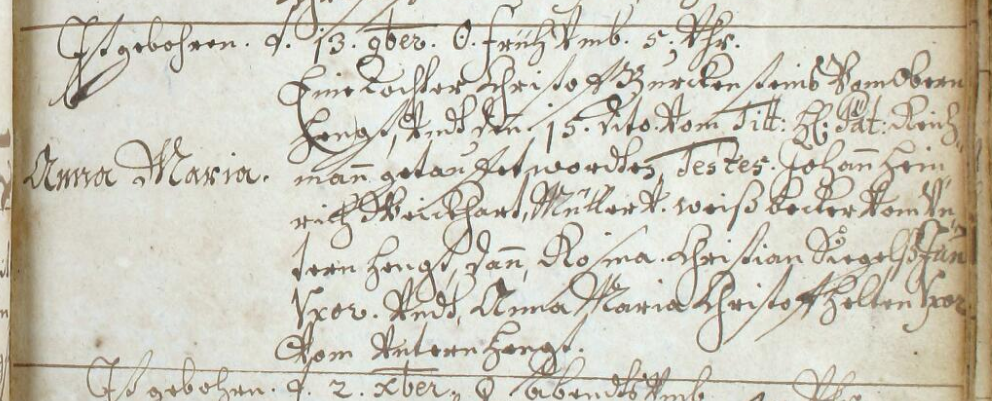 Ist gebohren. d. 13. 9ber. O. früh Umb. 5. Uhr.
Eine Tochter Christoff Burckensteins Vom Obern
Hengst, Undt den. 15. dito. Vom Titt: H: Pat: Reich
Anna Maria. mañ getauffet worden, Testes. Johañ Hein
rich Weickhart, Müller V. weißbecker Vom Un
tern Hengst, Dañ, Rosina. Christian Siegels Jun
Uxor. Undt, Anna Maria Christoff Helten Uxor
Vom Untern Hengst.
Ist gebohren. d. 2. Xber. O abendts Umb Uhr